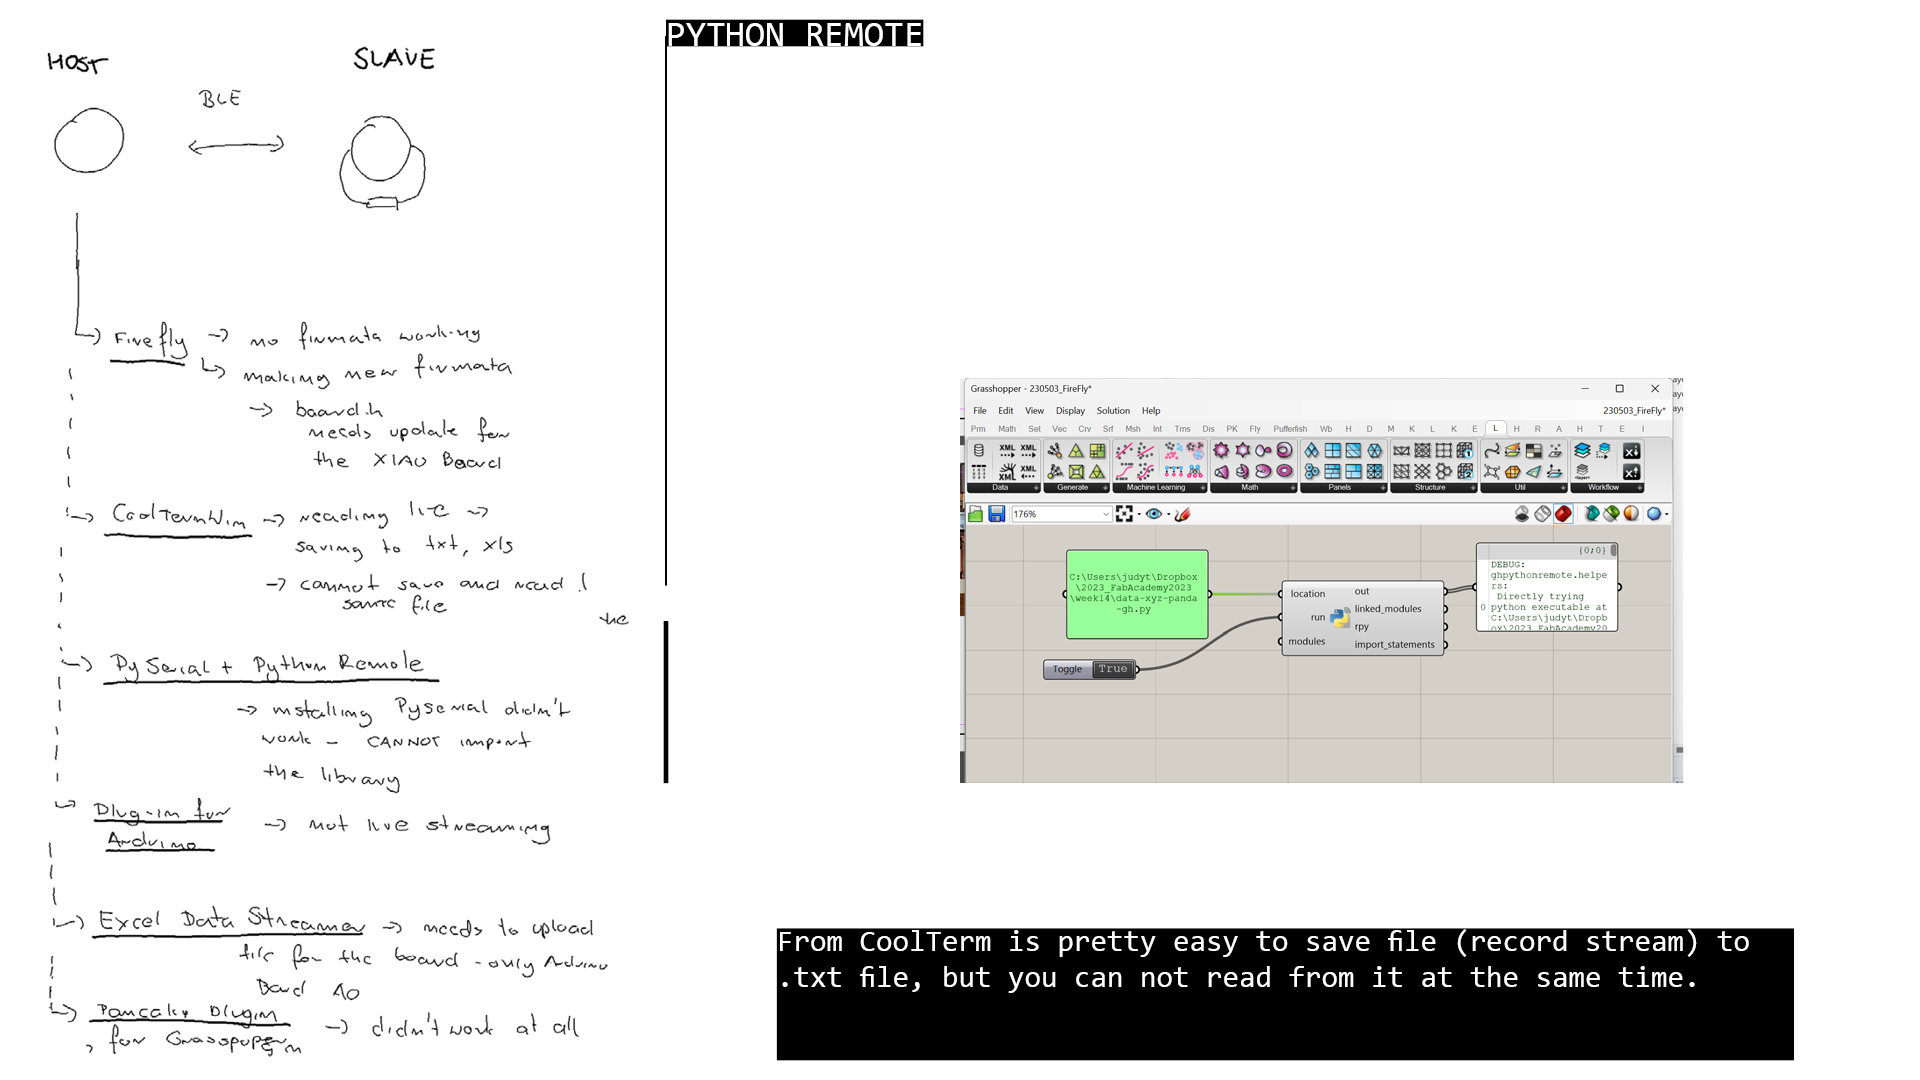 HOST
SLAVE
BLE
Firefly → no firmata working
making new firmata
→ board.h
needs update for
the XIAO Board
CoolTermWin → reading live →
saving to txt, xls
→ cannot save and read !
same file
the
PySerial + Python Remote
→ installing Pyserial didn't
work - CANNOT import
the library
Plug-in for
Arduino → not live streaming
Excel Data Streamer → needs to upload
file for the board - only Arduino
Board
Plugin
for → didn't work at all
PYTHON REMOTE
Grasshopper - 230503_FireFly*
File Edit View Display Solution Help
230503_FireFly*
Prm Math Set Vec Crv Srf Msh Int Trns Dis PK Fly Pufferfish Wb H D M K L K E L H R A H T E I
XML XML
XML XML
Data Generate Machine Learning Math Panels Structure Util Workflow
176%
C:\Users\judyt\Dropbox
\2023_FabAcademy2023
\week14\data-xyz-panda
-gh.py
Toggle True
location
run
modules
out
linked_modules
rpy
import_statements
{0;0}
DEBUG:
ghpythonremote.helpe
rs:
Directly trying
0 python executable at
C:\Users\judyt\Dropb
ox\2023_FabAcademy20
From CoolTerm is pretty easy to save file (record stream) to
.txt file, but you can not read from it at the same time.